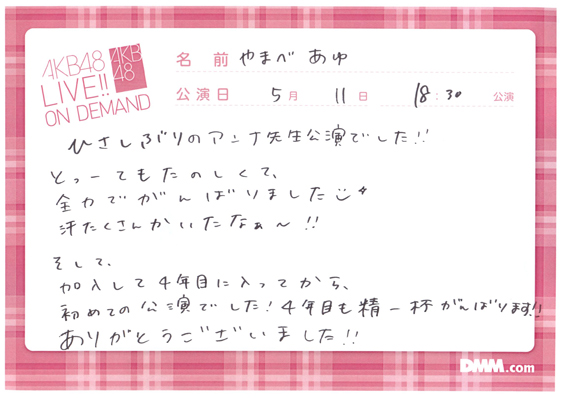 AKB48
LIVE!!
ON DEMAND
AKB
48
名前 やまべ あゆ
公演日 5月 11日 18:30 公演
ひさしぶりのアンナ先生公演でした!!
とっーてもたのしくて、
全力でがんばりました
汗たくさんかいたなぁ〜!!
そして、
加入して4年目に入ってから、
初めての公演でした!4年目も精一杯がんばります!!
ありがとうございました!!
DMM.com